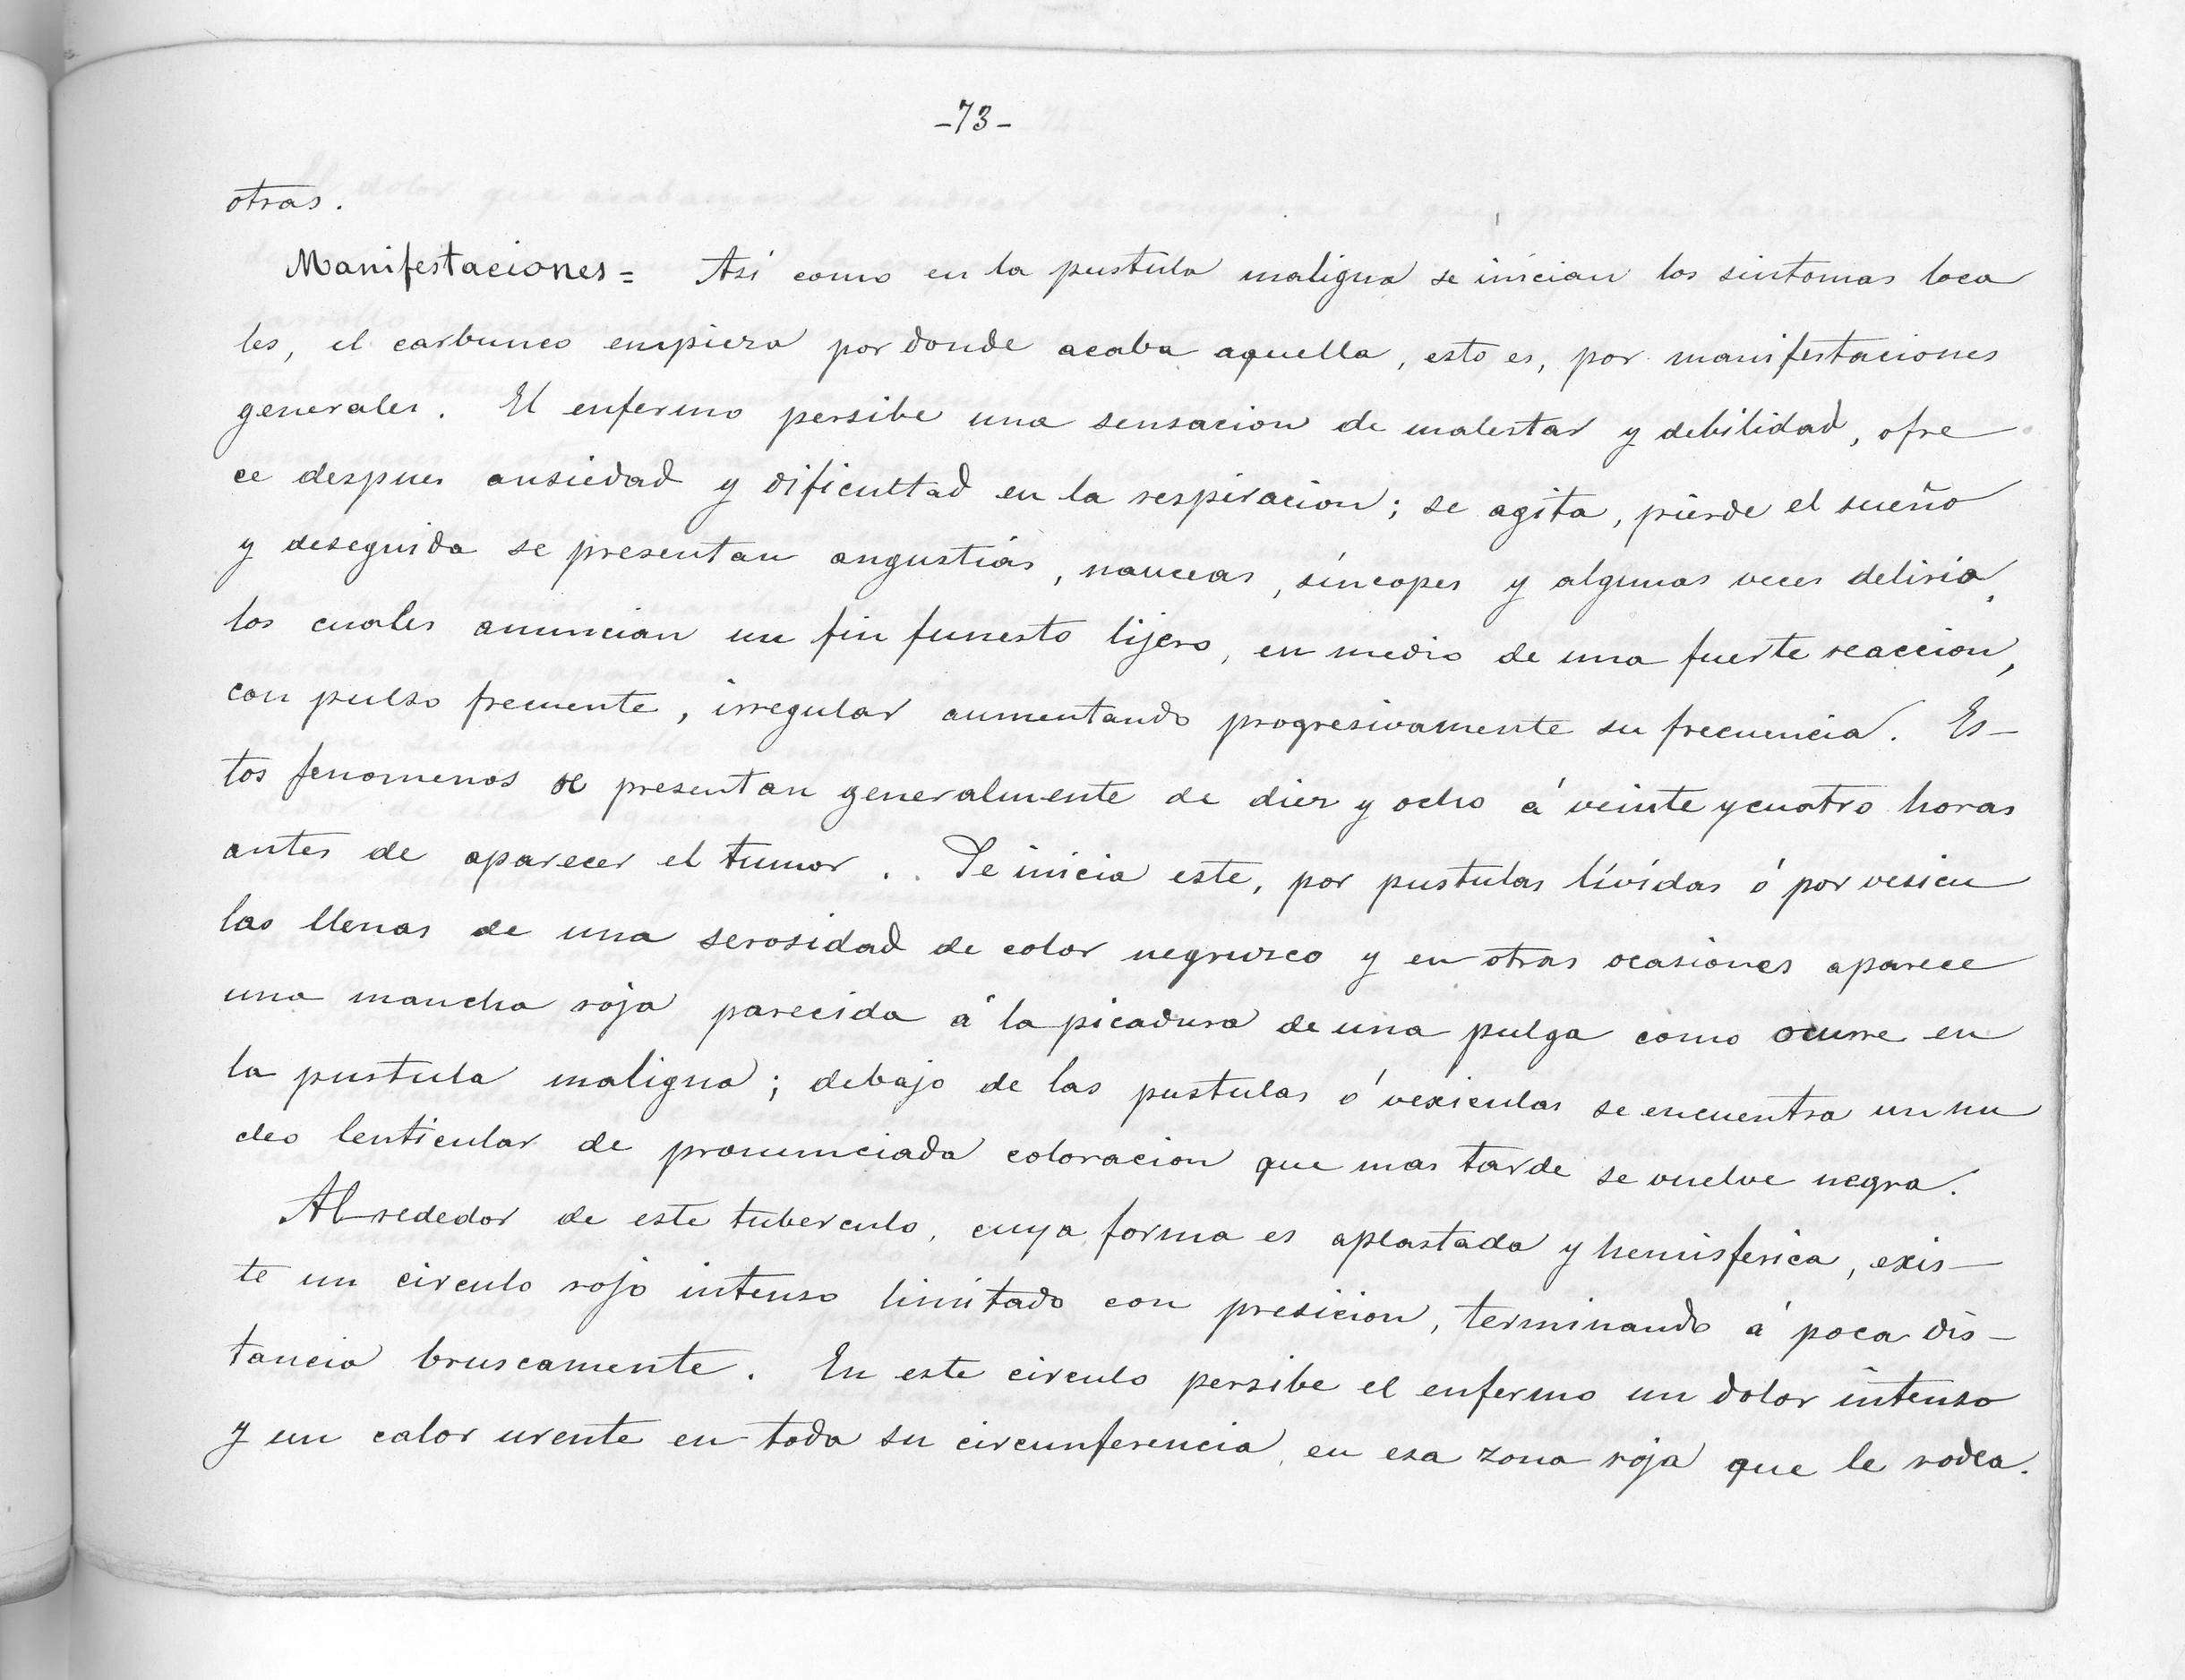 -73-
otras.
Manifestaciones= Asi como en la pustula maligna se inician los sintomas loca
les, el carbunco empieza por donde acaba aquella, esto es, por manifestaciones
generales. El enfermo persibe una sensacion de malestar y debilidad, ofre
ce despues ansiedad y dificultad en la respiracion; se agita, pierde el sueño
y deseguida se presentan angustias, nauceas, síncopes y algunas veces delirio,
los cuales anuncian un fin funesto lijero, en medio de una fuerte reaccion,
con pulso frecuente, irregular aumentando progresivamente su frecuencia. Es-
tos fenomenos se presentan generalmente de diez y ocho á veinte y cuatro horas
antes de aparecer el tumor. Se inicia este, por pustulas lívidas ó por vesicu
las llenas de una serosidad de color negruzco y en otras ocasiones aparece
una mancha roja parecida á la picadura de una pulga como ocurre en
la pustula maligna; debajo de las pustulas ó vexiculas se encuentra un nu
cleo lenticular de pronunciada coloracion que mas tarde se vuelve negra.
Al rededor de este tuberculo, cuya forma es aplastada y hemisferica, exis-
te un circulo rojo intenso limitado con presicion, terminando á poca dis-
tancia bruscamente. En este circulo persibe el enfermo un dolor intenso
y un calor urente en toda su circunferencia, en esa zona roja que le rodea.